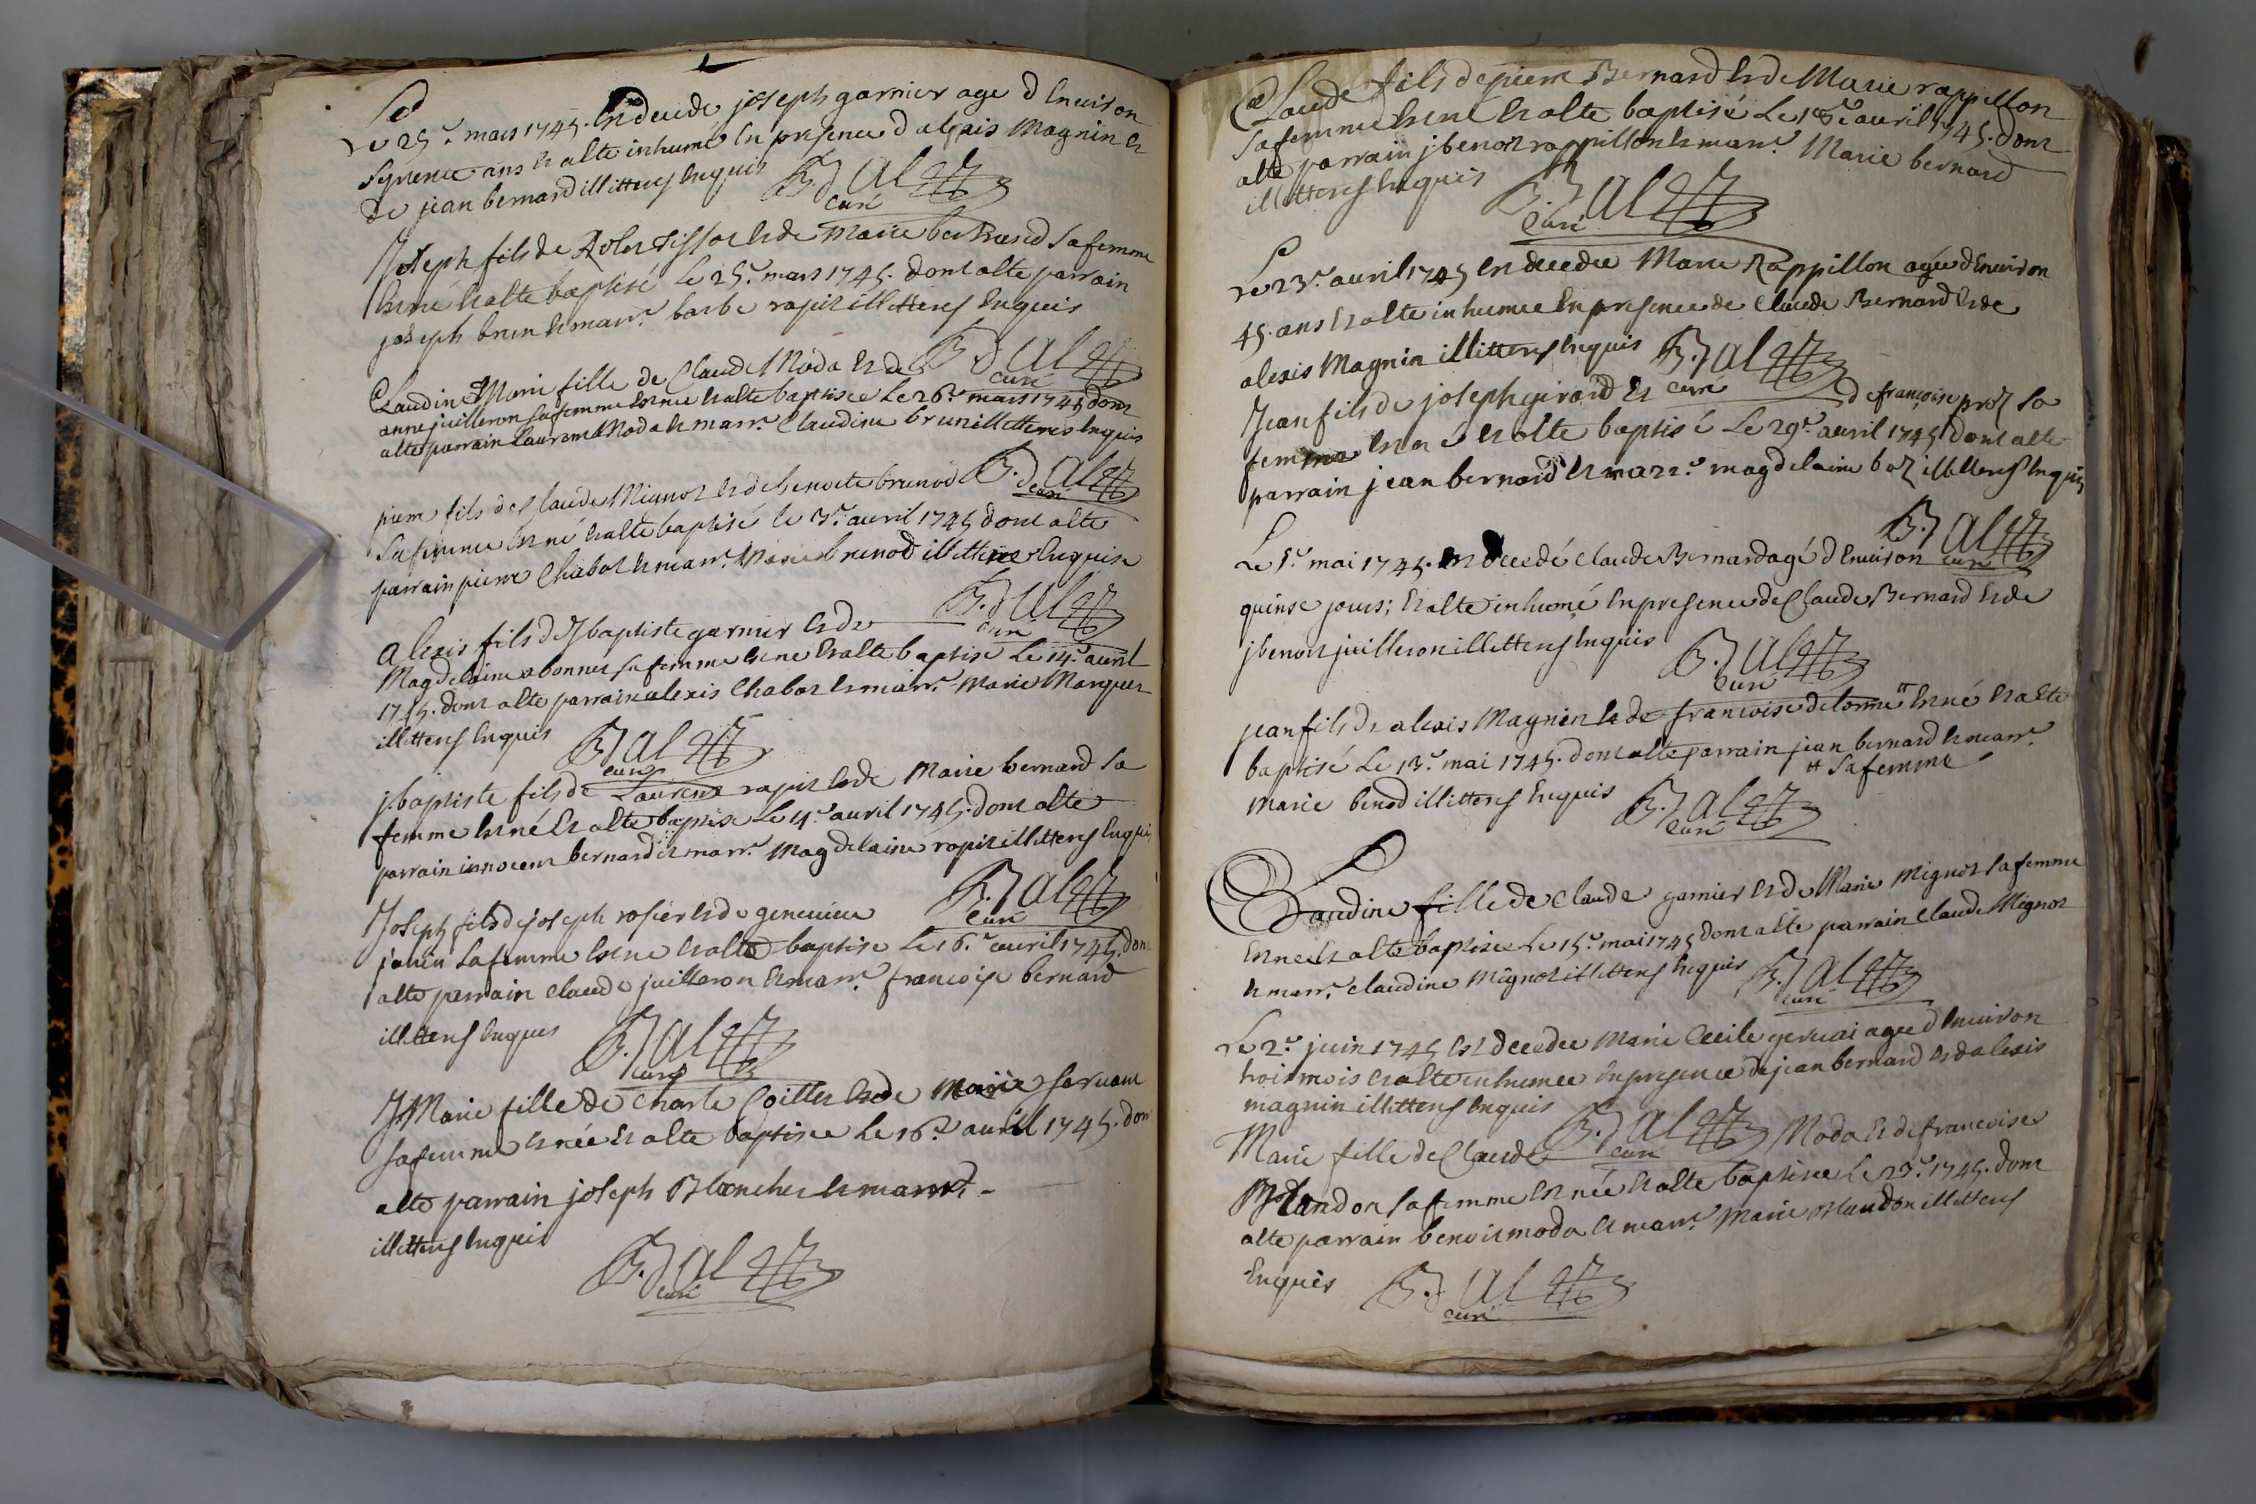 Le 25.e mars 1745. Est decedé joseph garnier age d Environ
Septente ans Et a Eté inhumé En presence d alexis Magnin Et
de jean bernard illitterés Enquis
B. dalez
curé
Joseph fils de tissot Et de Marie bertrand sa femme
Est né Et a Eté baptisé Le 25.e mars 1745. dont a Eté parrain
joseph brun Et marr.e barbe rapit illitterés Enquis
B. dalez
curé
Claudine Marie fille de Claude Moda Et de
anne juilleron sa femme Est née Et a Eté baptisée Le 26.e mars 1745 dont
a Eté parrain Laurent Moda Et marr.e Claudine brun illitteres Enquis
B. dalez
curé
pierre fils de Claude Mignot Et de benoite brunod
sa femme Est né Et a Eté baptisé le 3.e avril 1745 dont a Eté
parrain pierre Chabot Et marr.e Marie brunod illitteres Enquis
B. dalez
curé
alexis fils de J baptiste garnier Et de
Magdelaine sa femme Est né Et a Eté baptisé Le 14.e avril
1745. dont a Eté parrain alexis Chabot Et marr.e Marie Marguet
illitterés Enquis
B. dalez
curé
jbaptiste fils de Laurent rapit Et de Marie bernard sa
femme Est né Et a Eté baptisé Le 14.e avril 1745. dont a Eté
parrain innocent bernard Et marr.e Magdelaine rapit illitterés Enquis
B. dalez
curé
Joseph fils de joseph rosier Et de genevieve
janin sa femme Est né Et a Eté baptisé Le 16.e avril 1745. dont
a Eté parrain claude juilleron Et marr.e francoise bernard
illitterés Enquis
B. dalez
curé
J Marie fille de Charle Coittet Et de Marie
sa femme Est née Et a Eté baptisée Le 16.e avril 1745. dont
a Eté parrain joseph Blanchet Et marr.e -
illitterés Enquis
B. dalez
curé
Claude fils de pierre Bernard Et de Marie rappillon
sa femme Est né Et a Eté baptisé Le avril 1745. dont
a Eté parrain jbenoit rappillon Et marr.e Marie bernard
illitterés Enquis
B. dalez
curé
Le 23.e avril 1745 Est decedée Marie Rappillon agée d Environ
45. ans Et a Eté inhumée En presence de Claude Bernard Et de
alexis Magnin illitterés Enquis
B. dalez
curé
Jean fils de joseph girard Et de françoise proz sa
femme Est né Et a Eté baptisé Le 29.e avril 1745 dont a Eté
parrain jean bernard Et marr.e magdelaine boz illitterés Enquis
B. dalez
curé
Le 1.er mai 1745. Est decedé Claude Bernard agé d Environ
quinse jours; Et a Eté inhumé En presence de Claude Bernard Et de
jbenoit juilleron illitterés Enquis
B. dalez
curé
jean fils d alexis Magnin Et de francoise delorme # Est né Et a Eté
baptisé Le 13.e mai 1745. dont a Eté parrain jean bernard Et marr.e
# sa femme
Marie benod illitterés Enquis
B. dalez
curé
Claudine fille de Claude garnier Et de Marie Mignot sa femme
Est née Et a Eté baptisée Le 15.e mai 1745 dont a Eté parrain Claude Mignot
Et marr.e claudine Mignot illitterés Enquis
B. dalez
curé
Le 2.e juin 1745 Est decedée Marie Cecile gervai agée d Environ
trois mois Et a Eté inhumée En presence de jean bernard Et d alexis
magnin illitterés Enquis
B. dalez
curé
Marie fille de Claude Moda Et de francoise
Blandon sa femme Est née Et a Eté baptisée Le 23.e 1745. dont
a Eté parrain benoit moda Et marr.e Marie Blandon illitterés
Enquis
B. dalez
curé